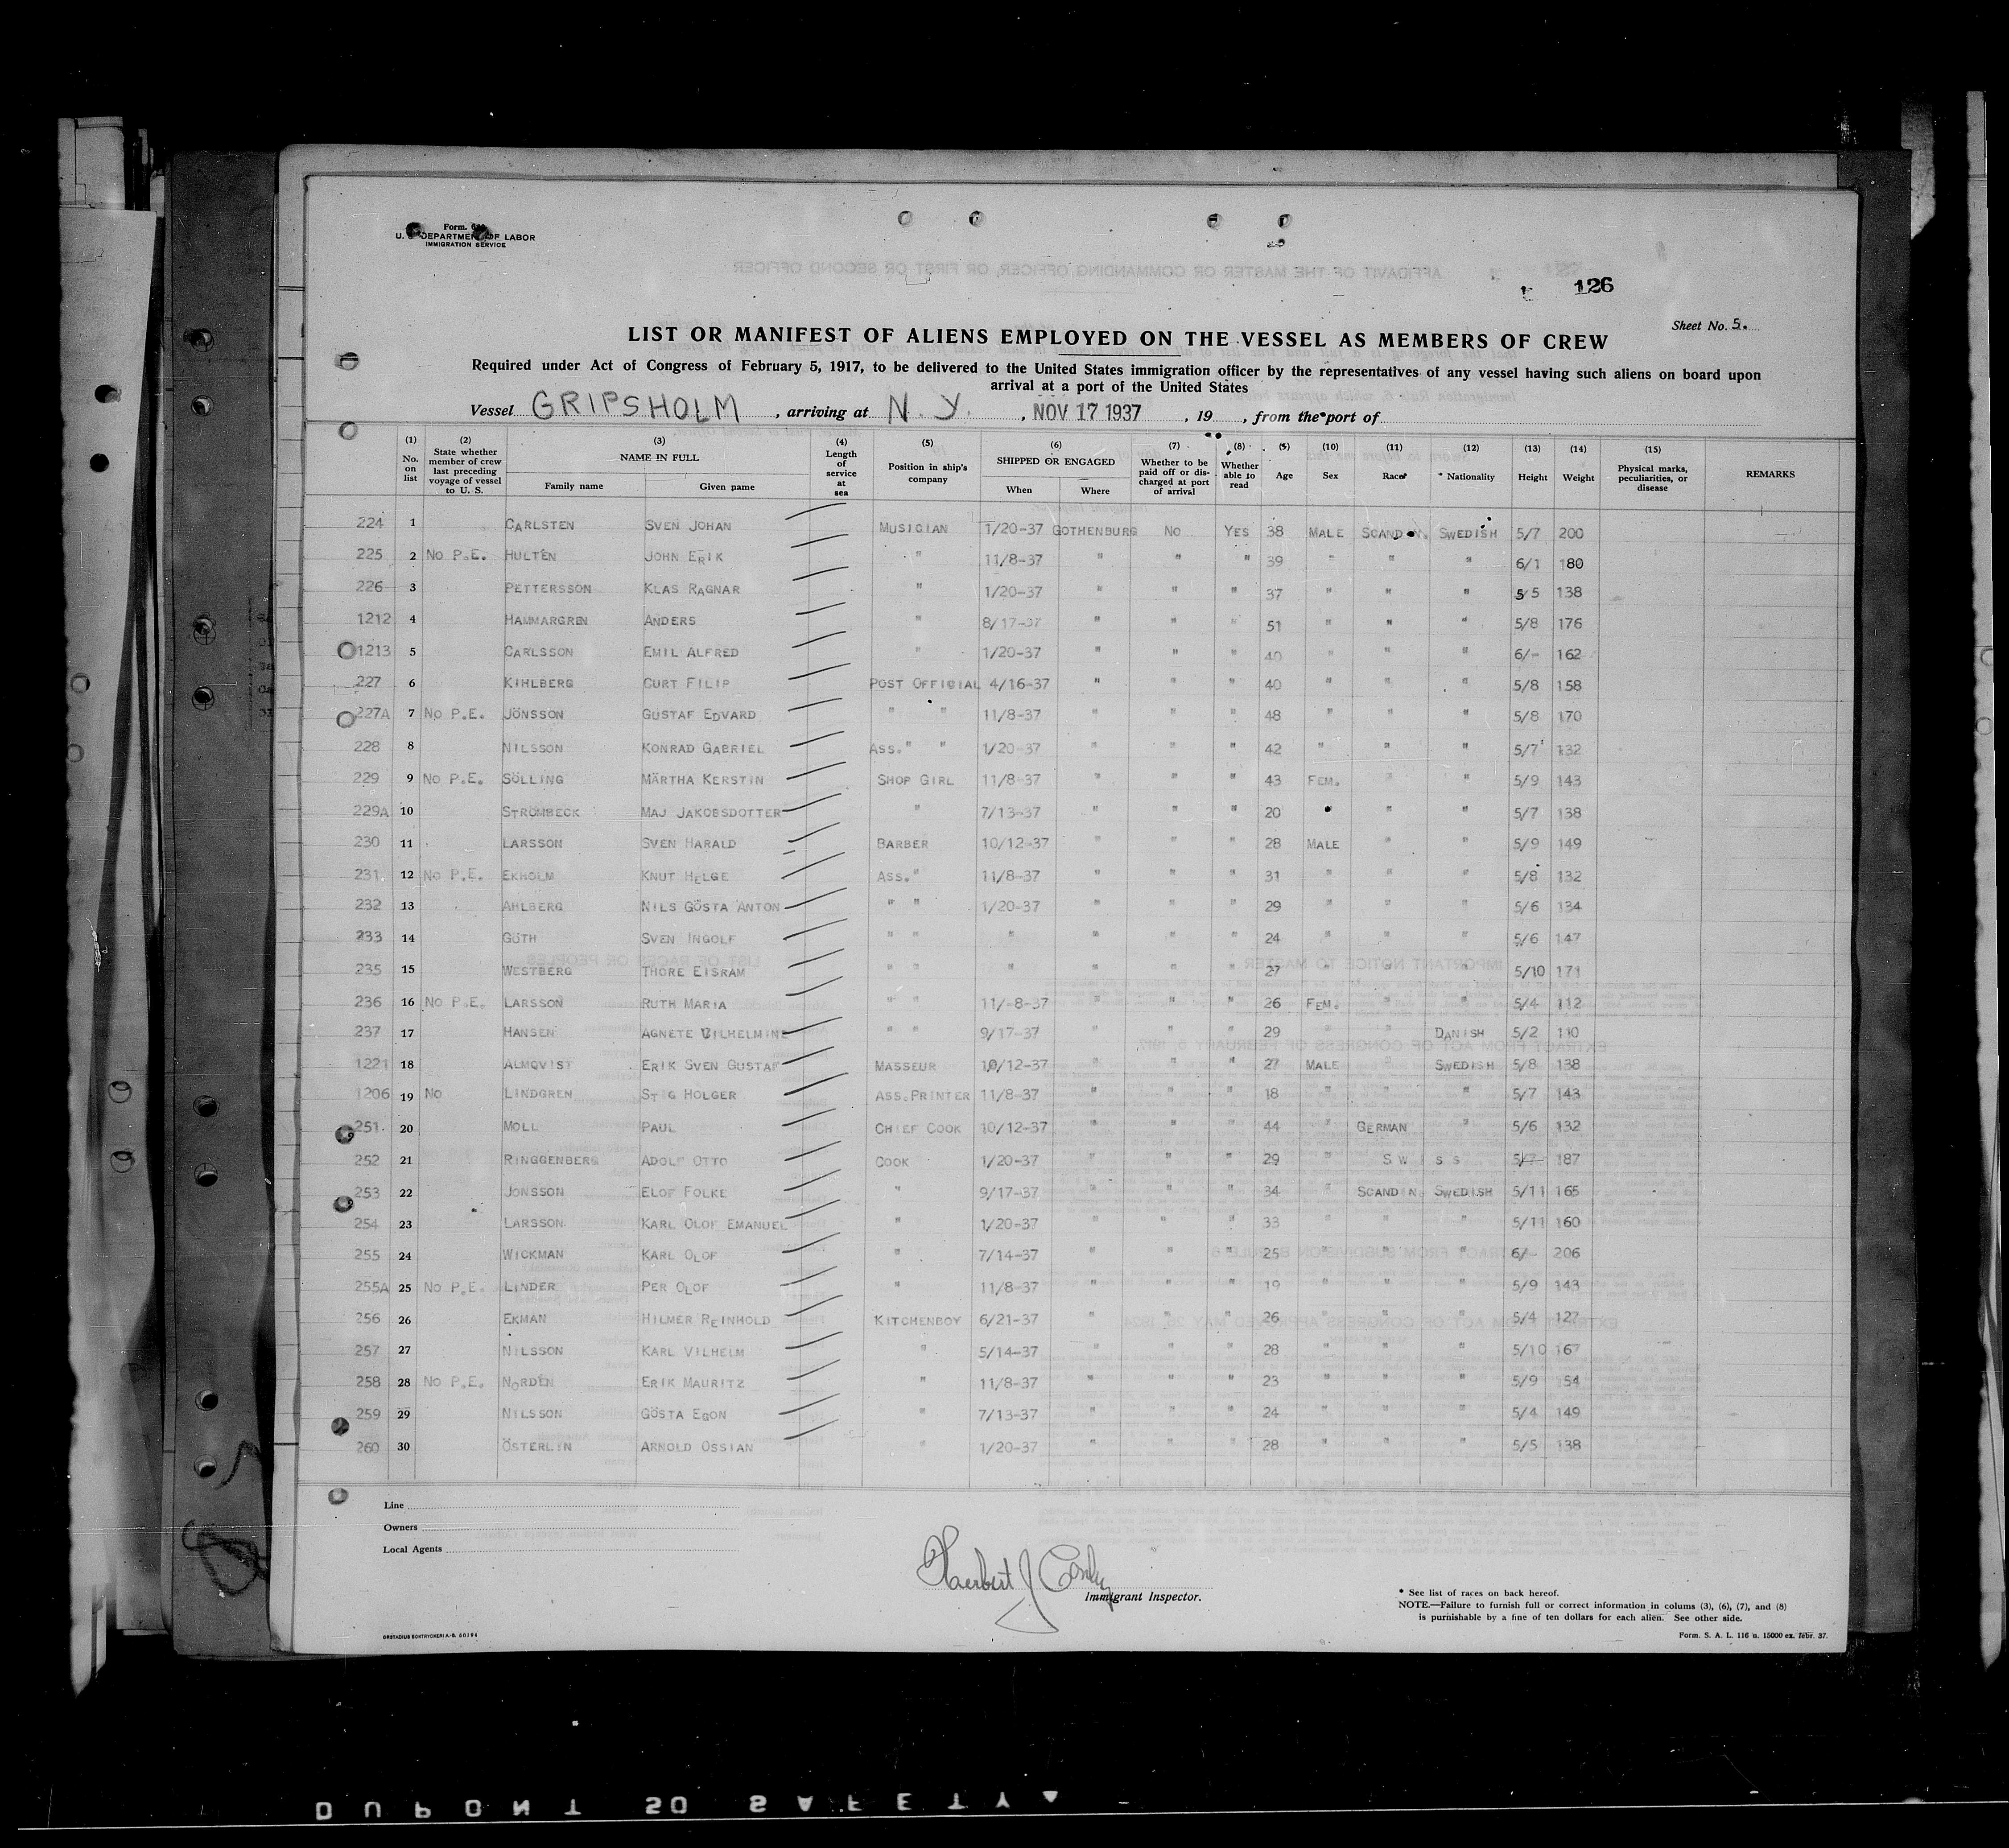 Form. 6
U. S. DEPARTMENT OF LABOR
IMMIGRATION SERVICE
AFFIDAVIT OF THE MASTER OR COMMANDING OFFICER, OR FIRST OR SECOND OFFICER
126
Sheet No. 5.
LIST OR MANIFEST OF ALIENS EMPLOYED ON THE VESSEL AS MEMBERS OF CREW
Required under Act of Congress of February 5, 1917, to be delivered to the United States immigration officer by the representatives of any vessel having such aliens on board upon
arrival at a port of the United States
Vessel GRIPSHOLM, arriving at N. Y., NOV 17 1937, 19, from the port of
(1) No. on list (2) State whether member of crew last preceding voyage of vessel to U. S. (3) NAME IN FULL Family name Given name (4) Length of service at sea (5) Position in ship's company (6) SHIPPED OR ENGAGED When Where (7) Whether to be paid off or discharged at port of arrival (8) Whether able to read (9) Age (10) Sex (11) Race* (12) * Nationality (13) Height (14) Weight (15) Physical marks, peculiarities, or disease REMARKS
224 1 CARLSTEN SVEN JOHAN MUSICIAN 1/20-37 GOTHENBURG NO YES 38 MALE SCANDIN. SWEDISH 5/7 200
225 2 NO P.E. HULTÉN JOHN ERIK " 11/8-37 " " " 39 " " " 6/1 180
226 3 PETTERSSON KLAS RAGNAR " 1/20-37 " " " 37 " " " 5/5 138
1212 4 HAMMARGREN ANDERS " 8/17-37 " " " 51 " " " 5/8 176
1213 5 CARLSSON EMIL ALFRED " 1/20-37 " " " 40 " " " 6/- 162
227 6 KIHLBERG CURT FILIP POST OFFICIAL 4/16-37 " " " 40 " " " 5/8 158
227A 7 NO P.E. JÖNSSON GUSTAF EDVARD " " 11/8-37 " " " 48 " " " 5/8 170
228 8 NILSSON KONRAD GABRIEL ASS." " 1/20-37 " " " 42 " " " 5/7 132
229 9 NO P.E. SÖLLING MÄRTHA KERSTIN SHOP GIRL 11/8-37 " " " 43 FEM. " " 5/9 143
229A 10 STRÖMBECK MAJ JAKOBSDOTTER " 7/13-37 " " " 20 " " " 5/7 138
230 11 LARSSON SVEN HARALD BARBER 10/12-37 " " " 28 MALE " " 5/9 149
231 12 NO P.E. EKHOLM KNUT HELGE ASS." 11/8-37 " " " 31 " " " 5/8 132
232 13 AHLBERG NILS GÖSTA ANTON " " 1/20-37 " " " 29 " " " 5/6 134
233 14 GÖTH SVEN INGOLF " " " " " " 24 " " " 5/6 147
235 15 WESTBERG THORE EISRAM " " " " " " 27 " " " 5/10 171
236 16 NO P.E. LARSSON RUTH MARIA " " 11/-8-37 " " " 26 FEM. " " 5/4 112
237 17 HANSEN AGNETE VILHELMINE " " 9/17-37 " " " 29 " " DANISH 5/2 110
1221 18 ALMQVIST ERIK SVEN GUSTAF MASSEUR 10/12-37 " " " 27 MALE " SWEDISH 5/8 138
1206 19 NO LINDGREN STIG HOLGER ASS.PRINTER 11/8-37 " " " 18 " " " 5/7 143
251. 20 MOLL PAUL CHIEF COOK 10/12-37 " " " 44 " GERMAN " 5/6 132
252 21 RINGGENBERG ADOLF OTTO COOK 1/20-37 " " " 29 " SWISS 5/7 187
253 22 JONSSON ELOF FOLKE " 9/17-37 " " " 34 " SCANDIN SWEDISH 5/11 165
254 23 LARSSON KARL OLOF EMANUEL " 1/20-37 " " " 33 " " " 5/11 160
255 24 WICKMAN KARL OLOF " 7/14-37 " " " 25 " " " 6/- 206
255A 25 NO P.E. LINDER PER OLOF " 11/8-37 " " " 19 " " " 5/9 143
256 26 EKMAN HILMER REINHOLD KITCHENBOY 6/21-37 " " " 26 " " " 5/4 127
257 27 NILSSON KARL VILHELM " 5/14-37 " " " 28 " " " 5/10 167
258 28 NO P.E. NORDÉN ERIK MAURITZ " 11/8-37 " " " 23 " " " 5/9 154
259 29 NILSSON GÖSTA EGON " 7/13-37 " " " 24 " " " 5/4 149
260 30 ÖSTERLIN ARNOLD OSSIAN " 1/20-37 " " " 28 " " " 5/5 138
Line
Owners
Local Agents
Herbert J
Immigrant Inspector.
* See list of races on back hereof.
NOTE.—Failure to furnish full or correct information in colums (3), (6), (7), and (8)
is purnishable by a fine of ten dollars for each alien. See other side.
Form. S. A. L. 116 n. 15000 ex. febr. 37.
DUPONT SO SAFETY